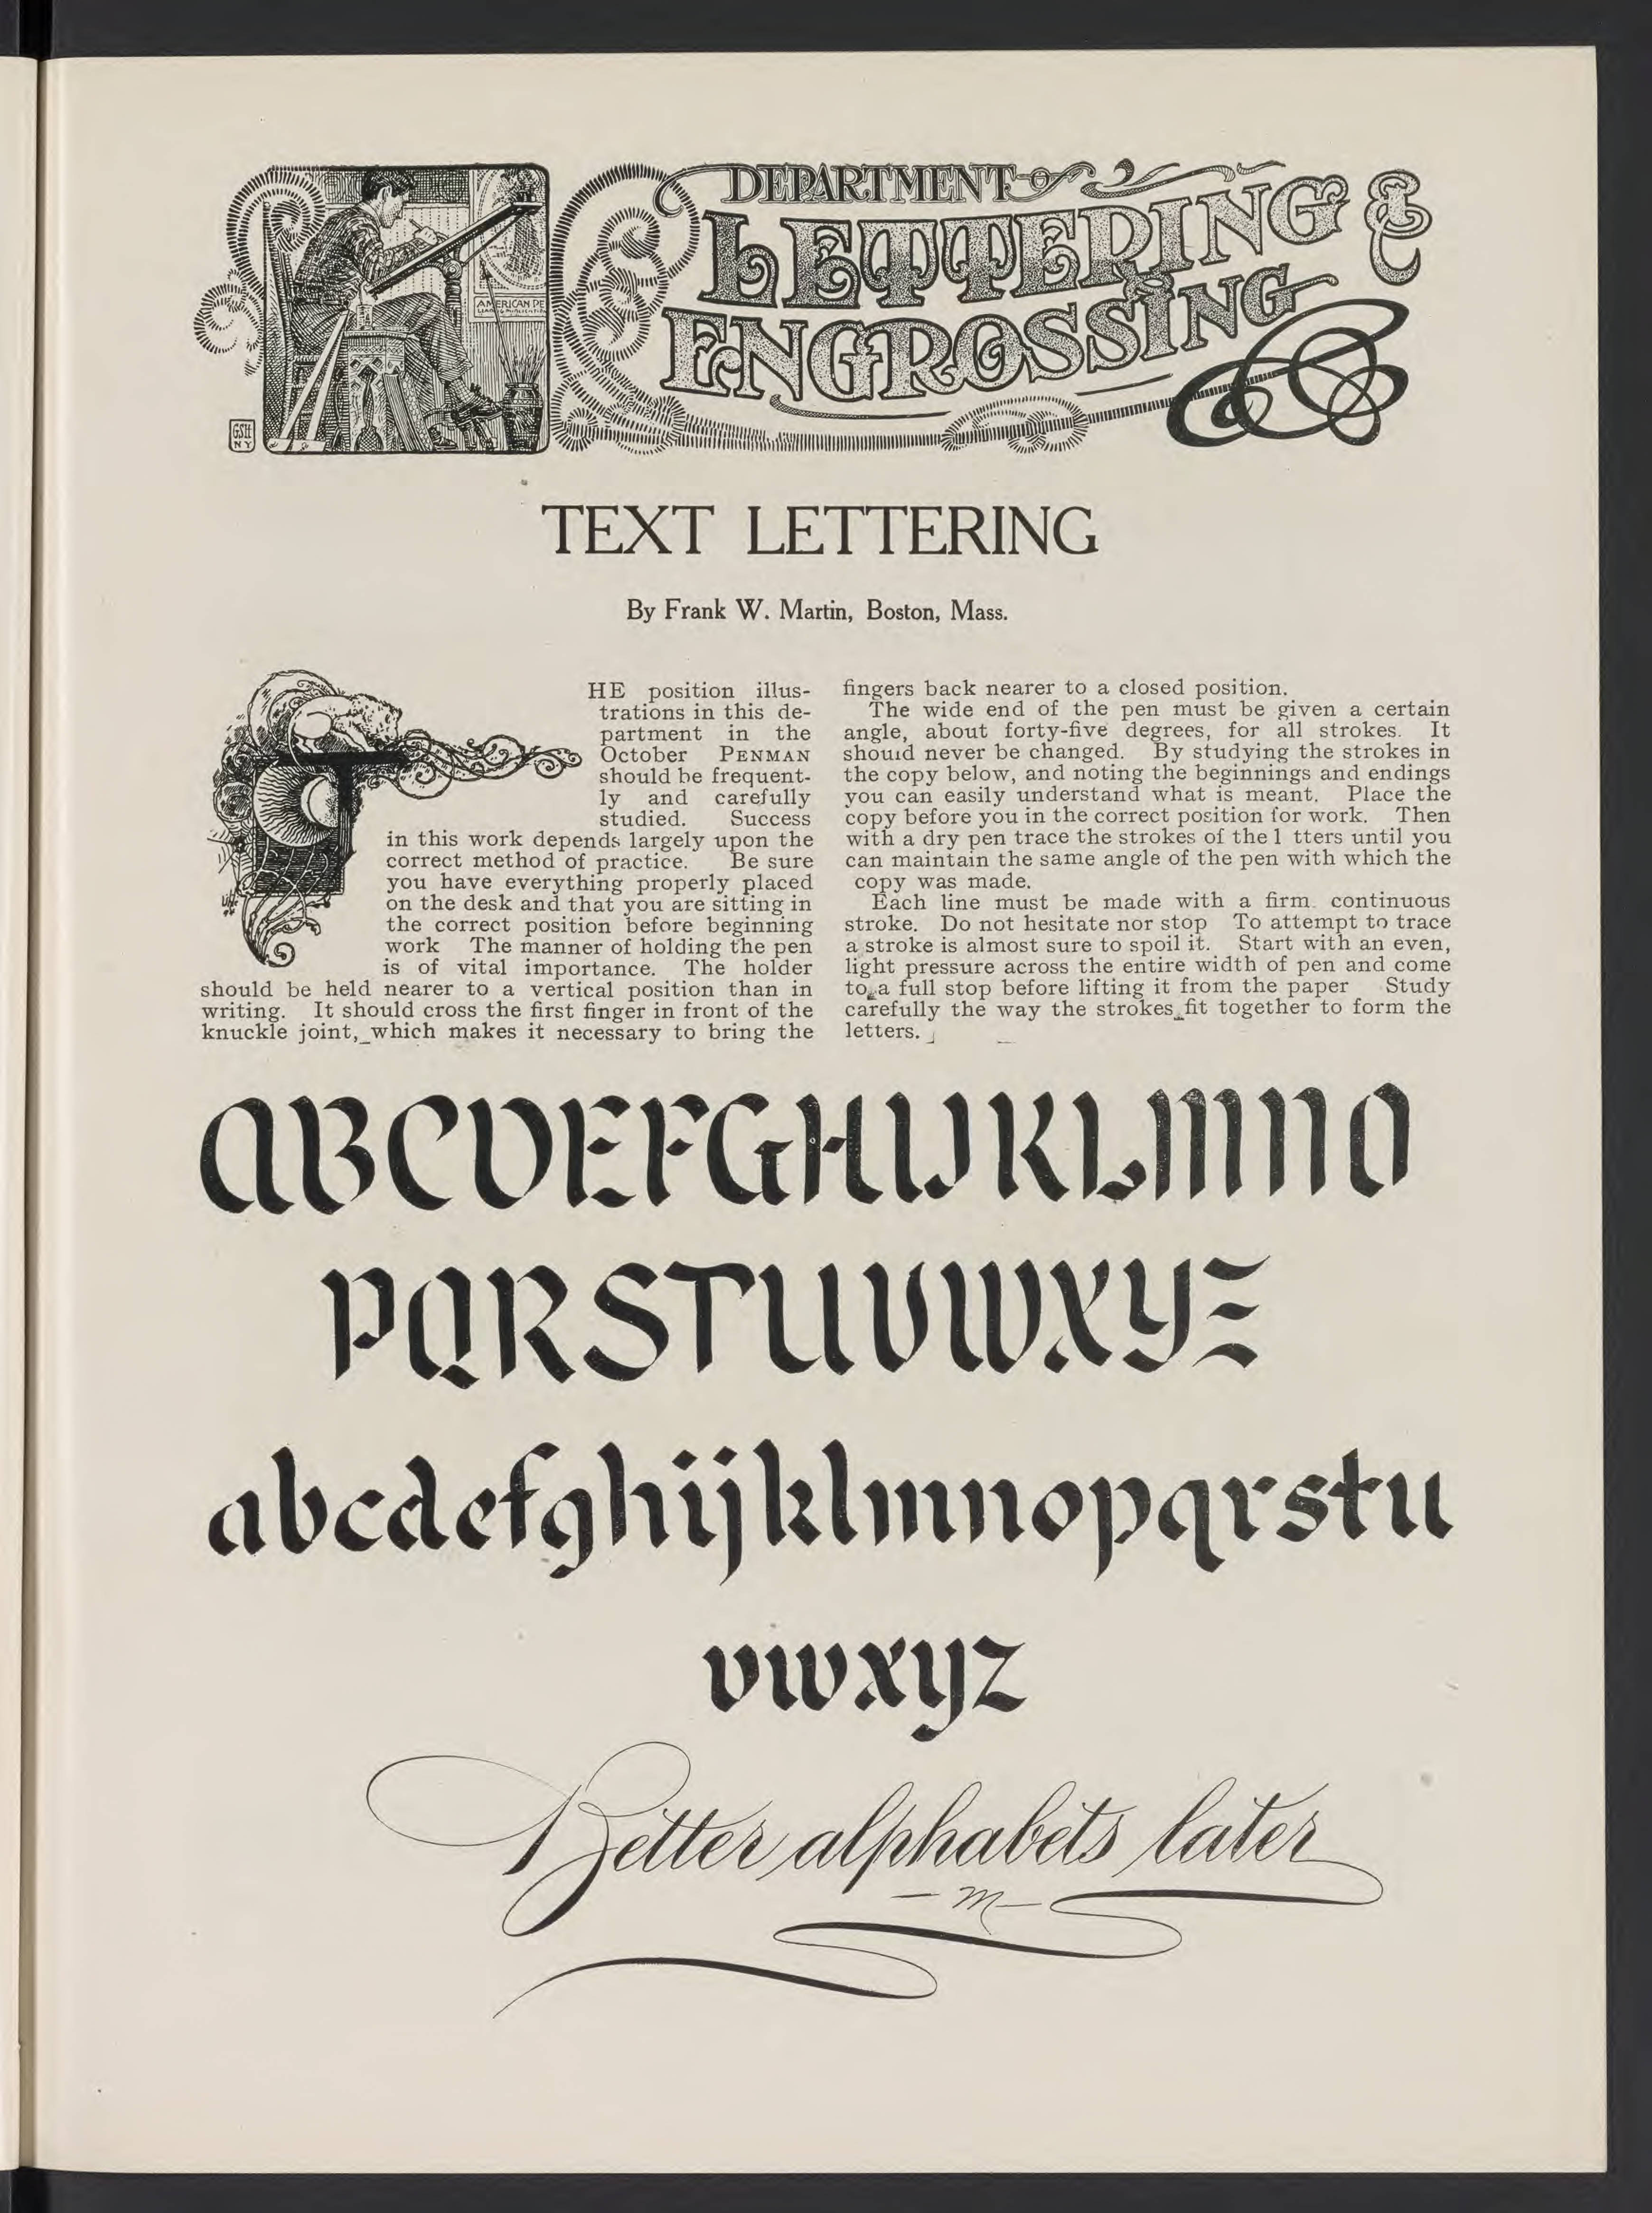 DEPARTMENT OF
LETTERING &
ENGROSSING
AMERICAN PE
GSH
NY
TEXT LETTERING
By Frank W. Martin, Boston, Mass.
THE position illus-
trations in this de-
partment in the
October PENMAN
should be frequent-
ly and carefully
studied. Success
in this work depends largely upon the
correct method of practice. Be sure
you have everything properly placed
on the desk and that you are sitting in
the correct position before beginning
work The manner of holding the pen
is of vital importance. The holder
should be held nearer to a vertical position than in
writing. It should cross the first finger in front of the
knuckle joint, which makes it necessary to bring the
fingers back nearer to a closed position.
The wide end of the pen must be given a certain
angle, about forty-five degrees, for all strokes. It
should never be changed. By studying the strokes in
the copy below, and noting the beginnings and endings
you can easily understand what is meant. Place the
copy before you in the correct position for work. Then
with a dry pen trace the strokes of the l tters until you
can maintain the same angle of the pen with which the
copy was made.
Each line must be made with a firm continuous
stroke. Do not hesitate nor stop To attempt to trace
a stroke is almost sure to spoil it. Start with an even,
light pressure across the entire width of pen and come
to a full stop before lifting it from the paper Study
carefully the way the strokes fit together to form the
letters.
ABCDEFGHIJKLMNO
PQRSTUVWXYZ
abcdefghijklmnopqrstu
vwxyz
Better alphabets later
—M—